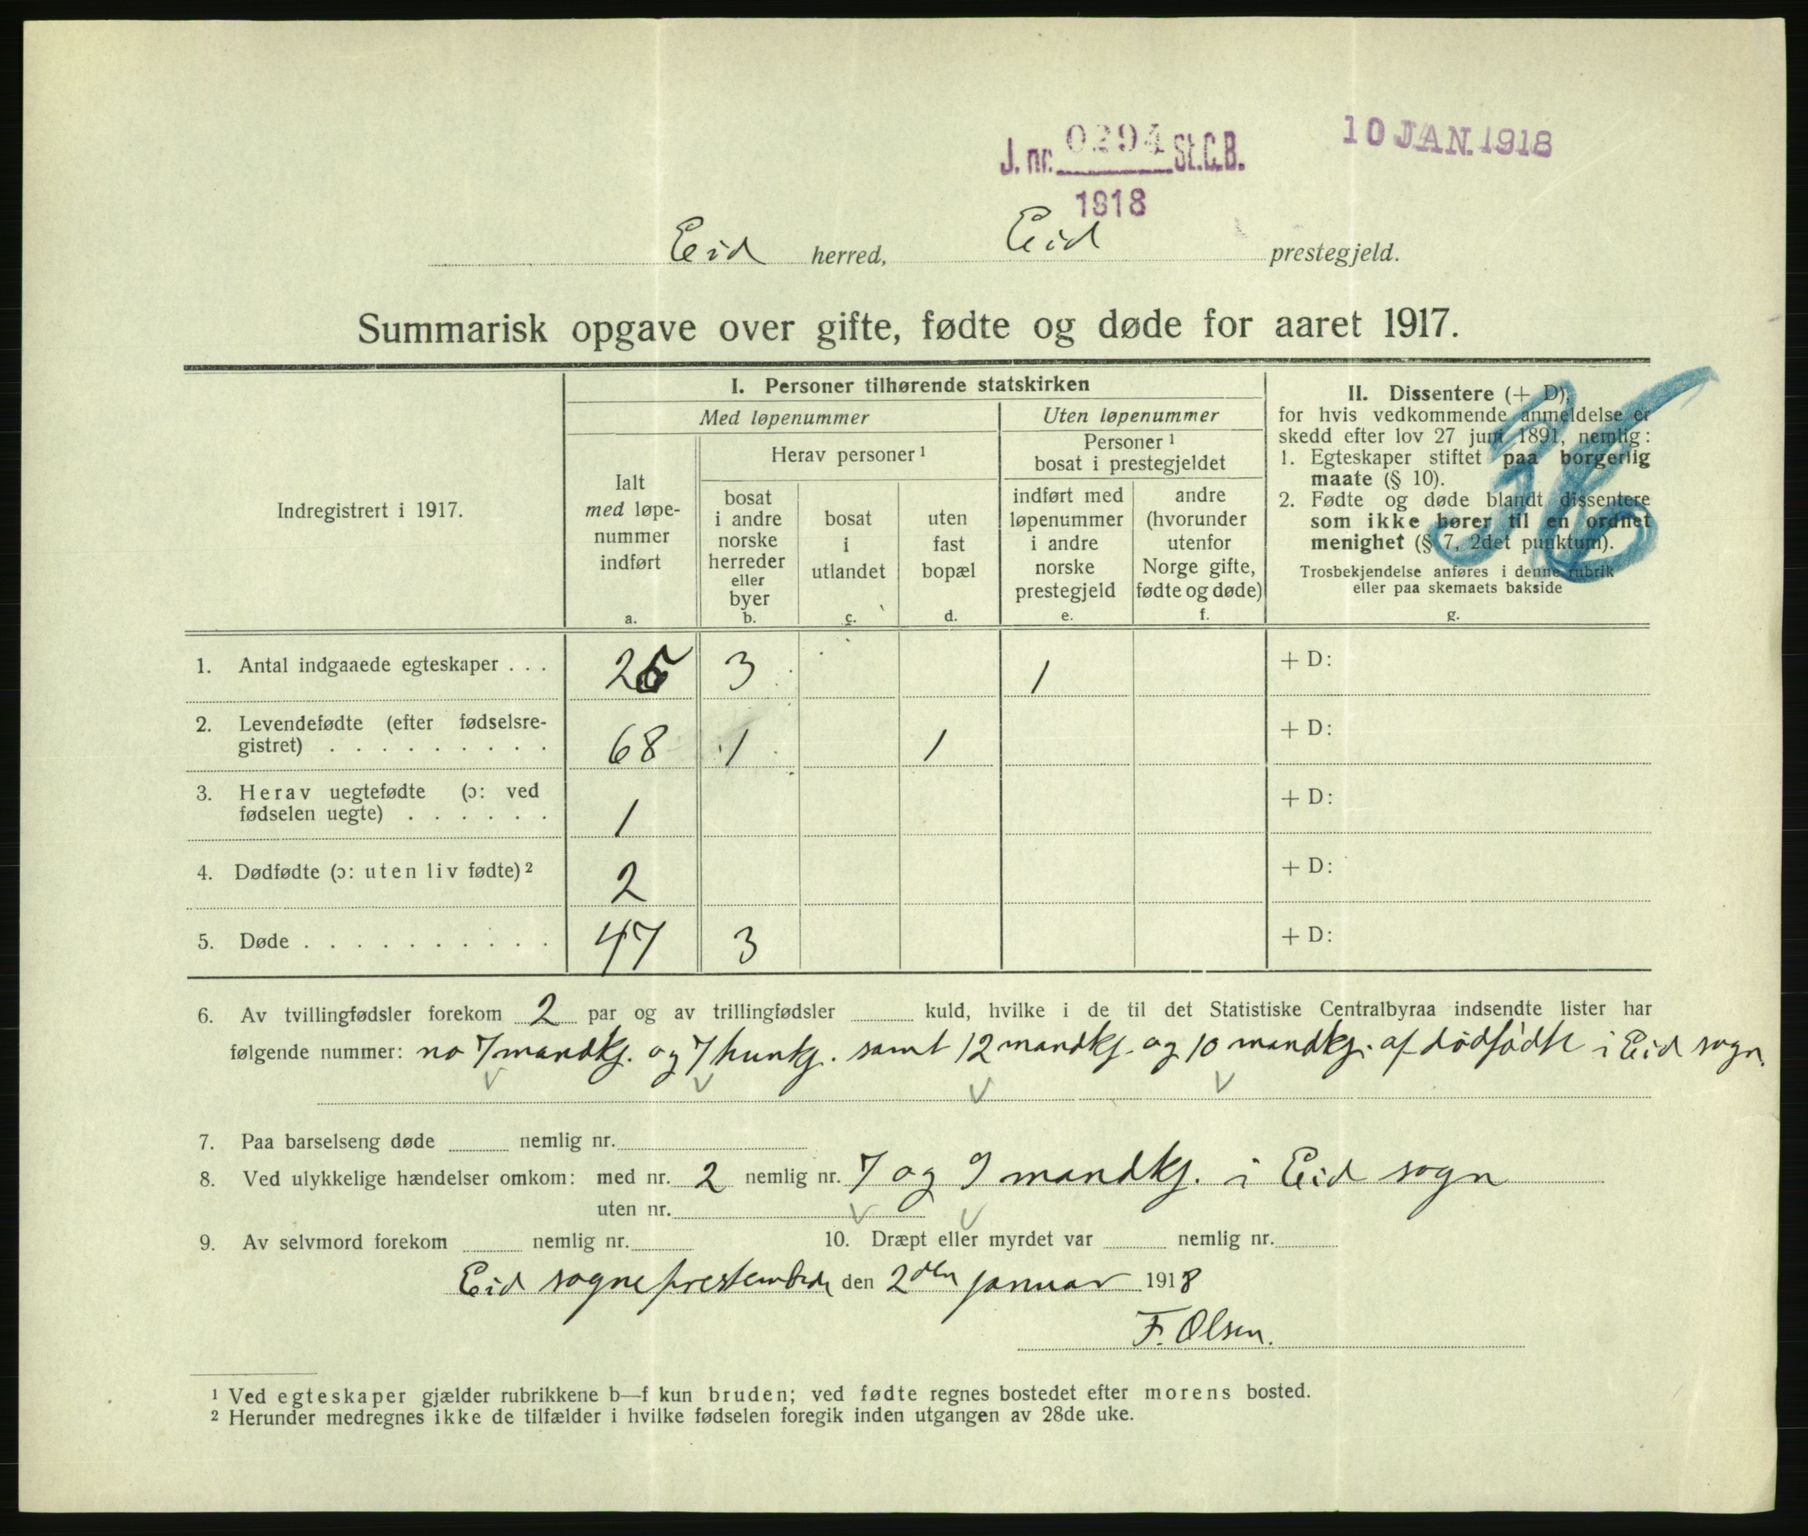 J. nr. 0294 St.C.B.
1918
10 JAN. 1918
Eid herred, Eid prestegjeld.
Summarisk opgave over gifte, fødte og døde for aaret 1917.
Indregistrert i 1917.
I. Personer tilhørende statskirken
Med løpenummer
Uten løpenummer
Ialt
med løpe-
nummer
indført
a.
Herav personer ¹
bosat
i andre
norske
herreder
eller
byer
b.
bosat
i
utlandet
c.
uten
fast
bopæl
d.
Personer ¹
bosat i prestegjeldet
indført med
løpenummer
i andre
norske
prestegjeld
e.
andre
(hvorunder
utenfor
Norge gifte,
fødte og døde)
f.
II. Dissentere (+ D),
for hvis vedkommende anmeldelse er
skedd efter lov 27 juni 1891, nemlig:
1. Egteskaper stiftet paa borgerlig
maate (§ 10).
2. Fødte og døde blandt dissentere
som ikke hører til en ordnet
menighet (§ 7, 2det punktum).
Trosbekjendelse anføres i denne rubrik
eller paa skemaets bakside
g.
1. Antal indgaaede egteskaper . . . 3 1 + D:
2. Levendefødte (efter fødselsre-
gistret) . . . . . . . . . 68 1 1 + D:
3. Herav uegtefødte (ɔ: ved
fødselen uegte) . . . . . . 1 + D:
4. Dødfødte (ɔ: uten liv fødte) ² 2 + D:
5. Døde . . . . . . . . . . 47 3 + D:
6. Av tvillingfødsler forekom 2 par og av trillingfødsler kuld, hvilke i de til det Statistiske Centralbyraa indsendte lister har
følgende nummer: no 7 mandkj. og 7 kunkj. samt 12 mandkj. og 10 mandkj. af dødfødte i Eid sogn.
7. Paa barselseng døde nemlig nr.
8. Ved ulykkelige hændelser omkom: med nr. 2 nemlig nr. 7 og 9 mandkj. i Eid sogn
uten nr.
9. Av selvmord forekom nemlig nr. 10. Dræpt eller myrdet var nemlig nr.
Eid sogneprestembede den 2den januar 1918
F. Olsen.
¹ Ved egteskaper gjælder rubrikkene b—f kun bruden; ved fødte regnes bostedet efter morens bosted.
² Herunder medregnes ikke de tilfælder i hvilke fødselen foregik inden utgangen av 28de uke.